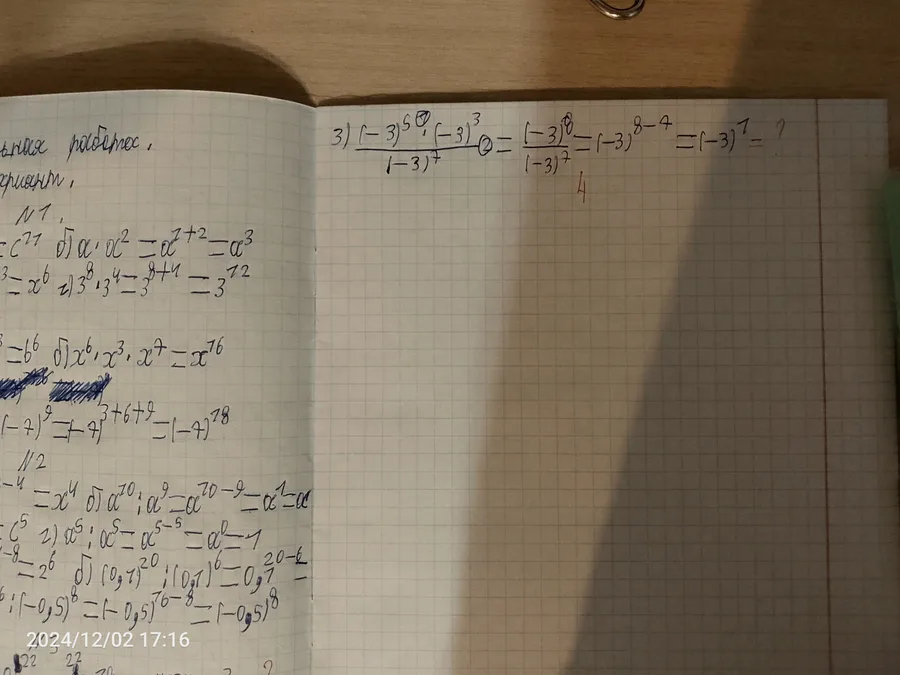 ьная работа.
ариант.
N1.
=c²¹ б) a·a²=a¹⁺²=a³
³=x⁶ г) 3⁸·3⁴=3⁸⁺⁴=3¹²
=b⁶ б) x⁶·x³·x⁷=x¹⁶
(-7)⁹=(-7)³⁺⁶⁺⁹=(-7)¹⁸
N2
⁻⁴=x⁴ б) a¹⁰:a⁹=a¹⁰⁻⁹=a¹=a
=c⁵ г) a⁵:a⁵=a⁵⁻⁵=a⁰=1
⁻⁸=2⁶ б) (0,1)²⁰:(0,1)⁶=0,1²⁰⁻⁶=
:(-0,5)⁸=(-0,5)¹⁶⁻⁸=(-0,5)⁸
2024/12/02 17:16
3) (-3)⁵ ① · (-3)³ / (-3)⁷ ② = (-3)⁸ / (-3)⁷ = (-3)⁸⁻⁷ = (-3)¹ = ?
4